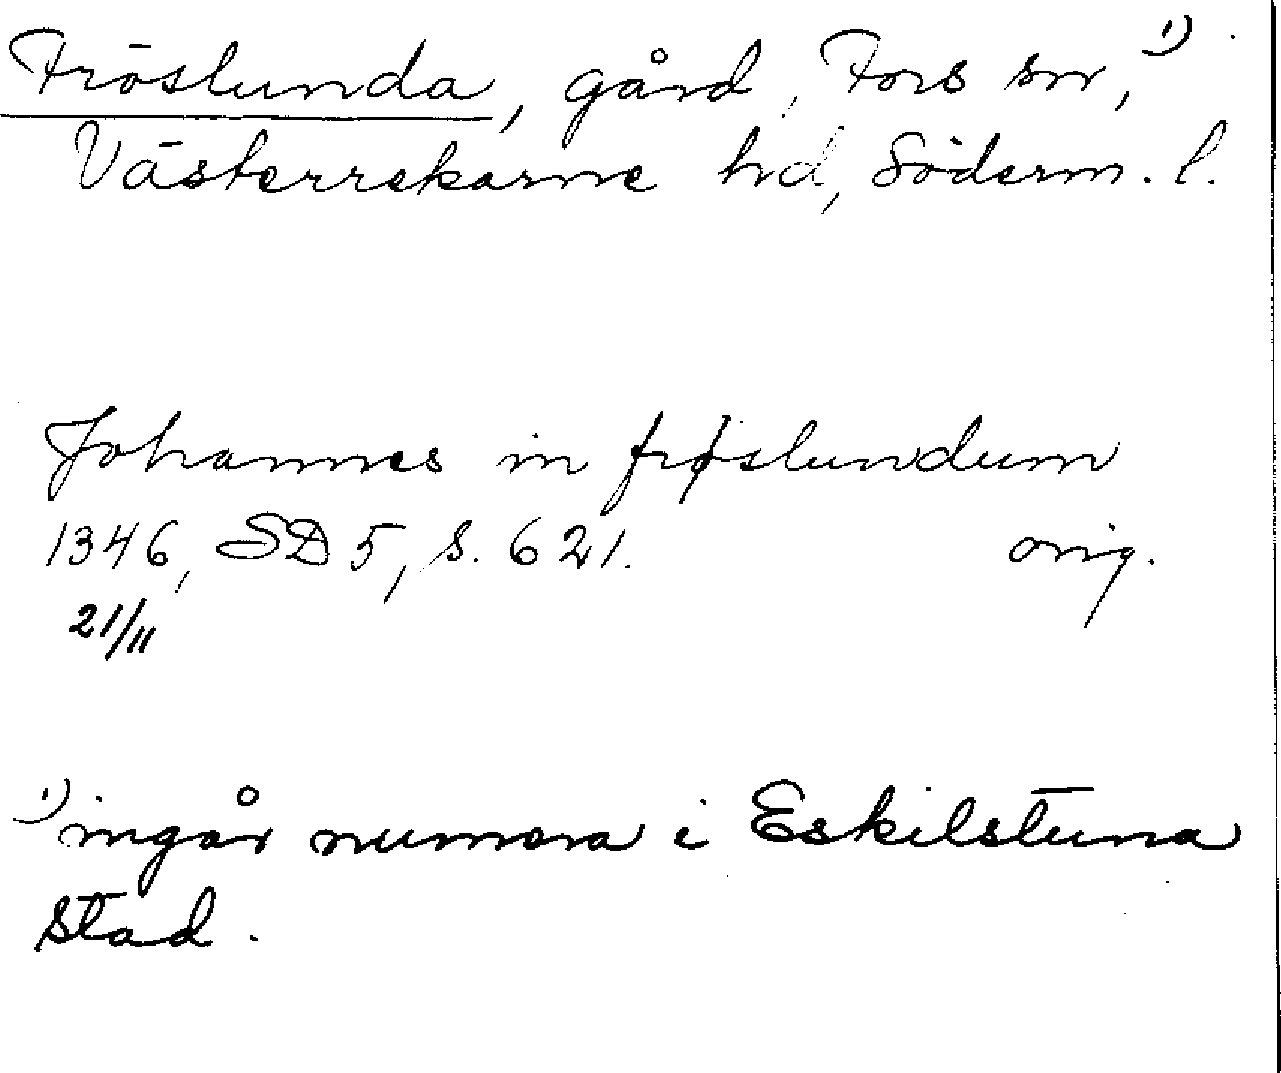 Fröslunda, gård, Fors sn, 1)
Västerrekarne hd, Söderm. l.
Johannes in frøslundum
1346, SD 5, s. 621. orig.
21/11
1) ingår numera i Eskilstuna
stad.